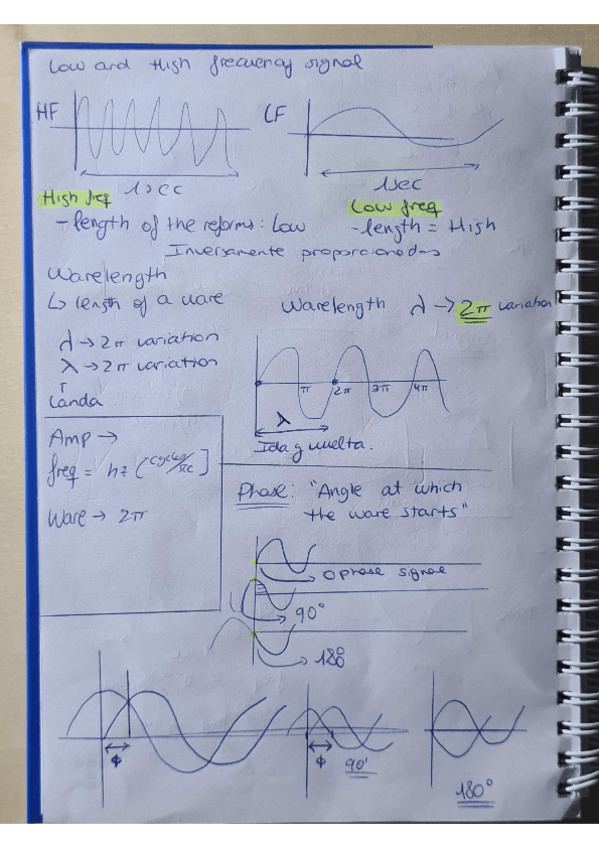 Low and High frecuency signal
HF
LF
1sec
1sec
High freq
Low freq
-length of the reforms: Low
-length = High
Inversamente proporcionados
Wavelength
↳ length of a wave
Wavelength λ → 2π variation
λ → 2π variation
λ → 2π variation
↑
Landa
π 2π 3π 4π
λ
Ida y vuelta.
Amp →
freq = hz [cycles/sec]
Wave → 2π
Phase: "Angle at which
the wave starts"
0 phase signal
90°
180°
ϕ
ϕ
90°
180°